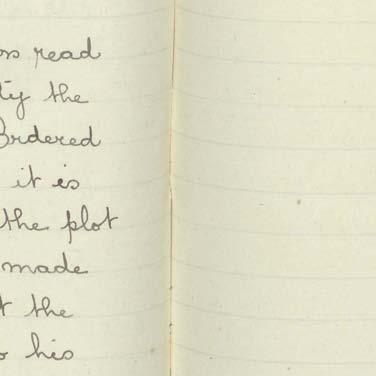 read
the
Ordered
it is
the plot
made
the
his